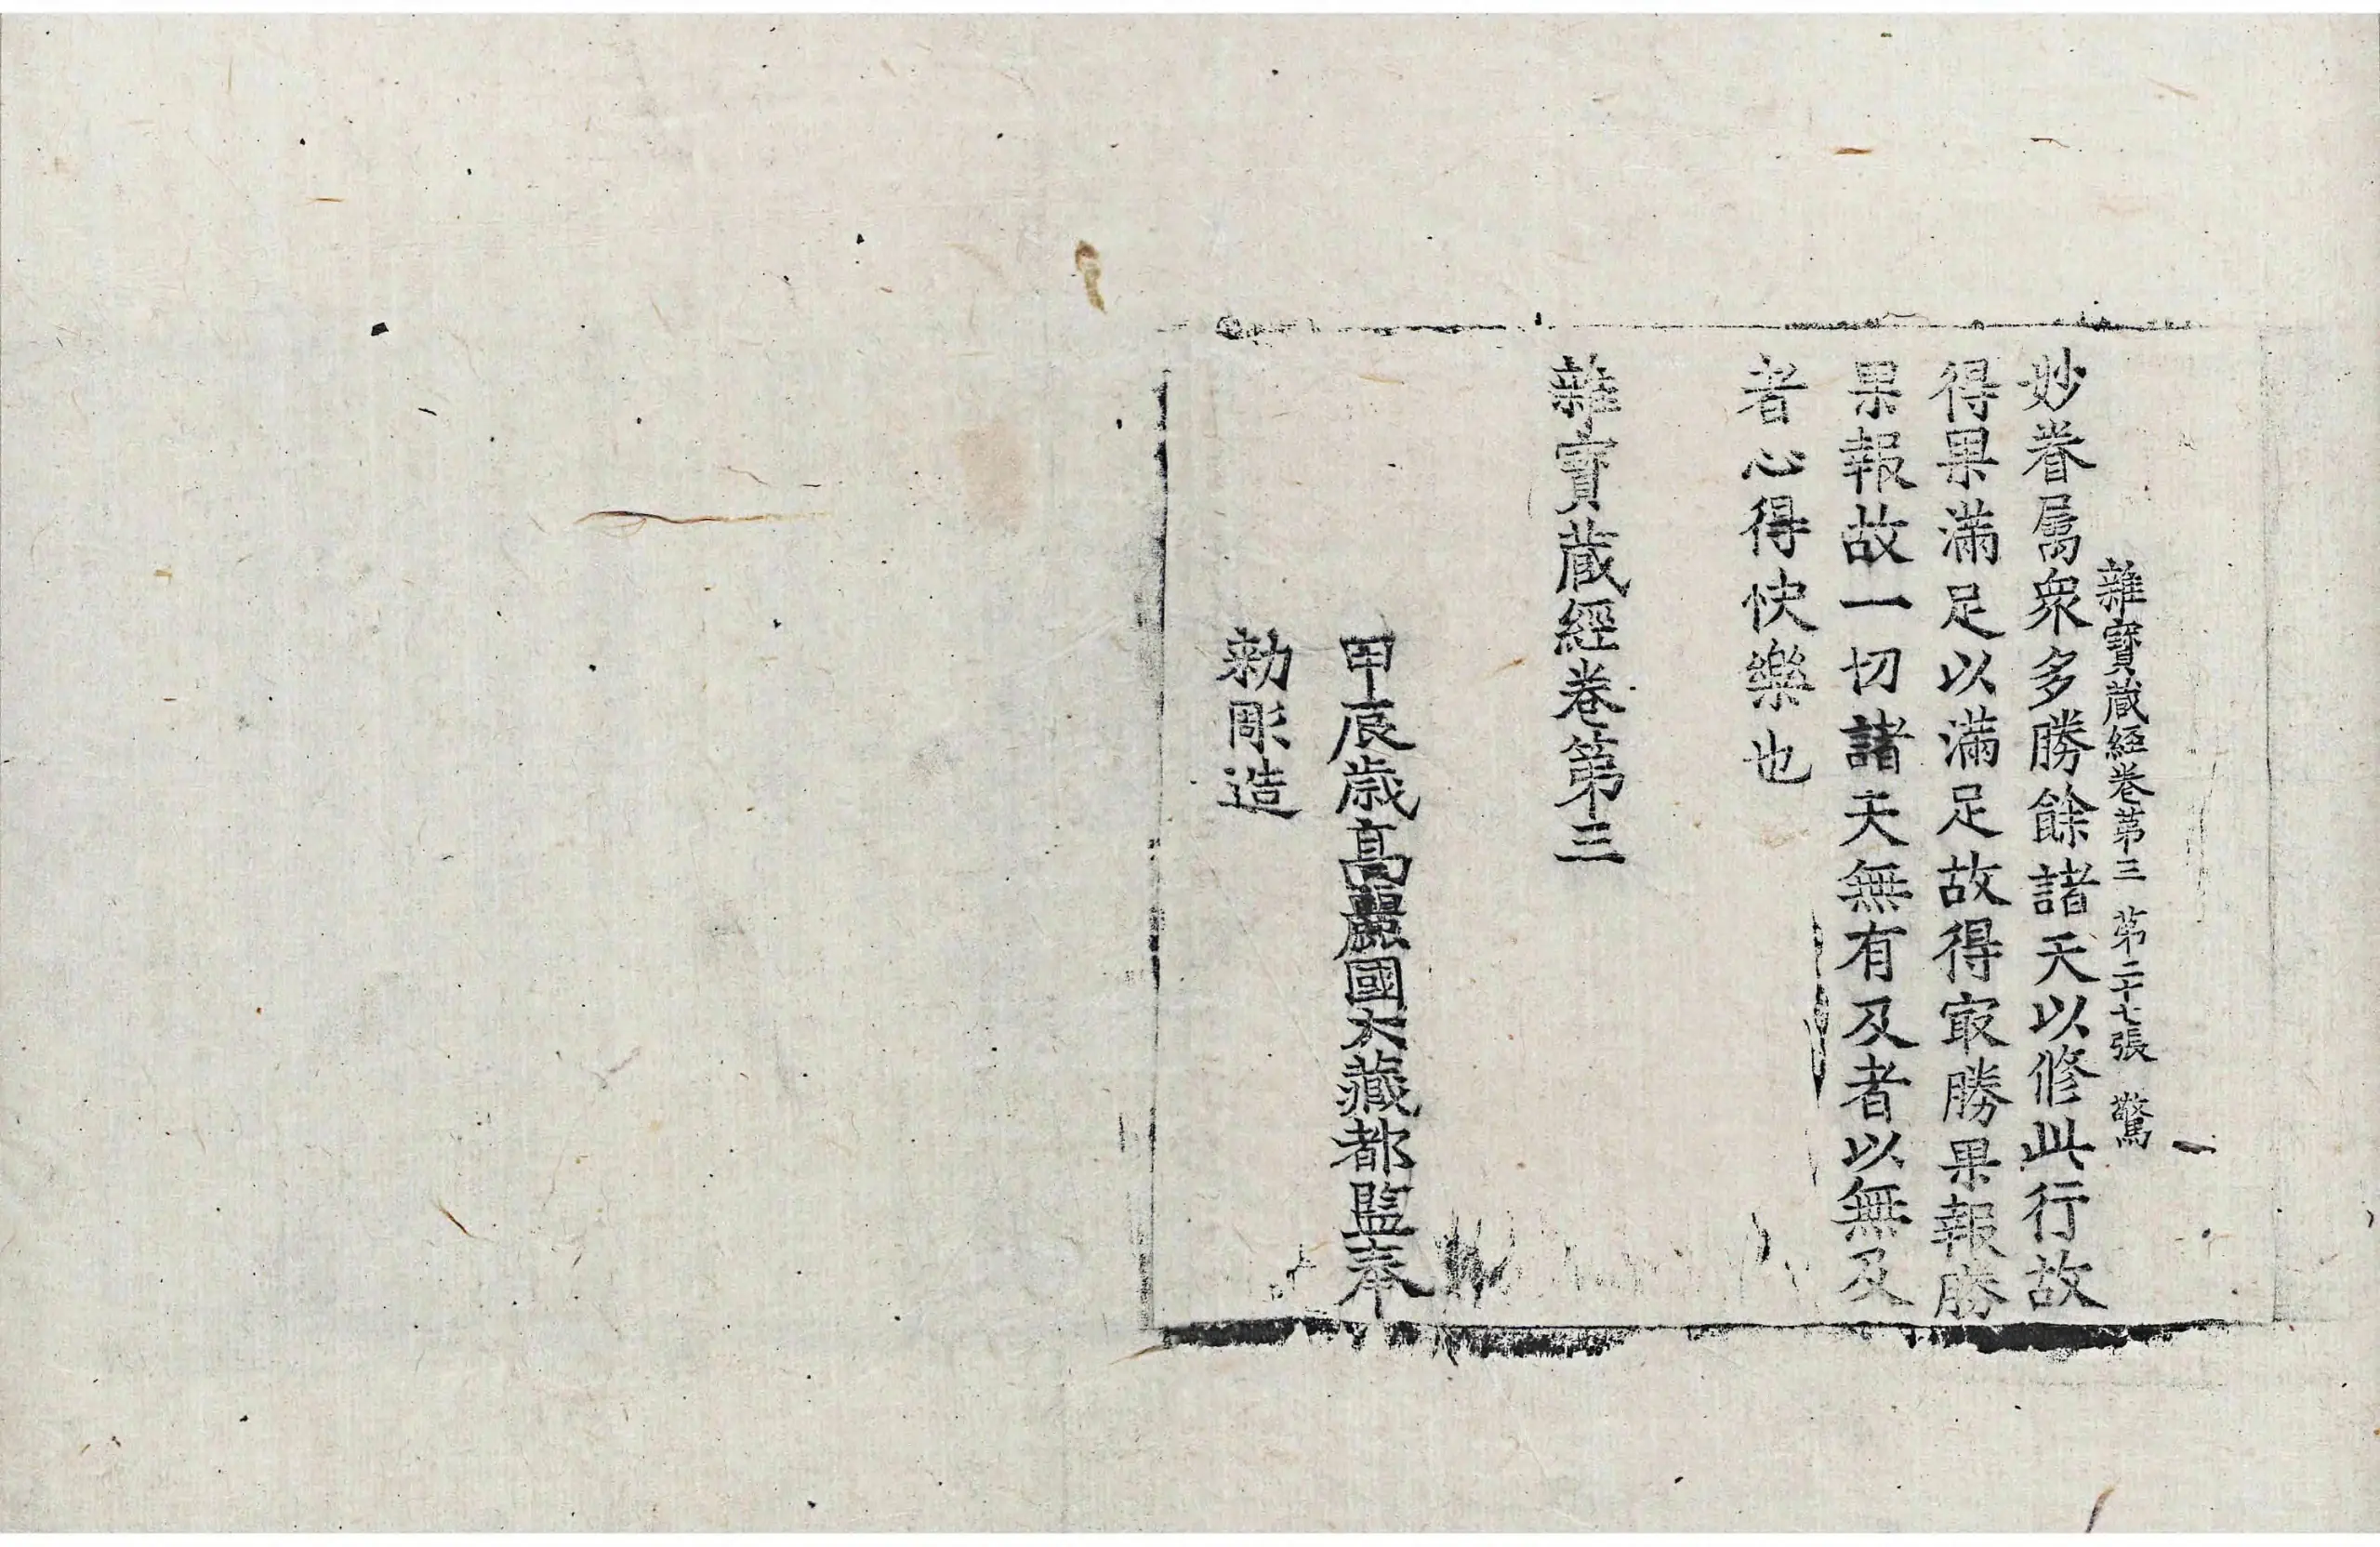 雜寶蔵經卷第三　第二十七張　驚
妙眷屬衆多勝餘諸天以修此行故
得果滿足以滿足故得冣勝果報勝
果報故一切諸天無有及者以無及
者心得快樂也
雜寶蔵經卷第三
甲辰歳高麗國大藏都監奉
勑彫造